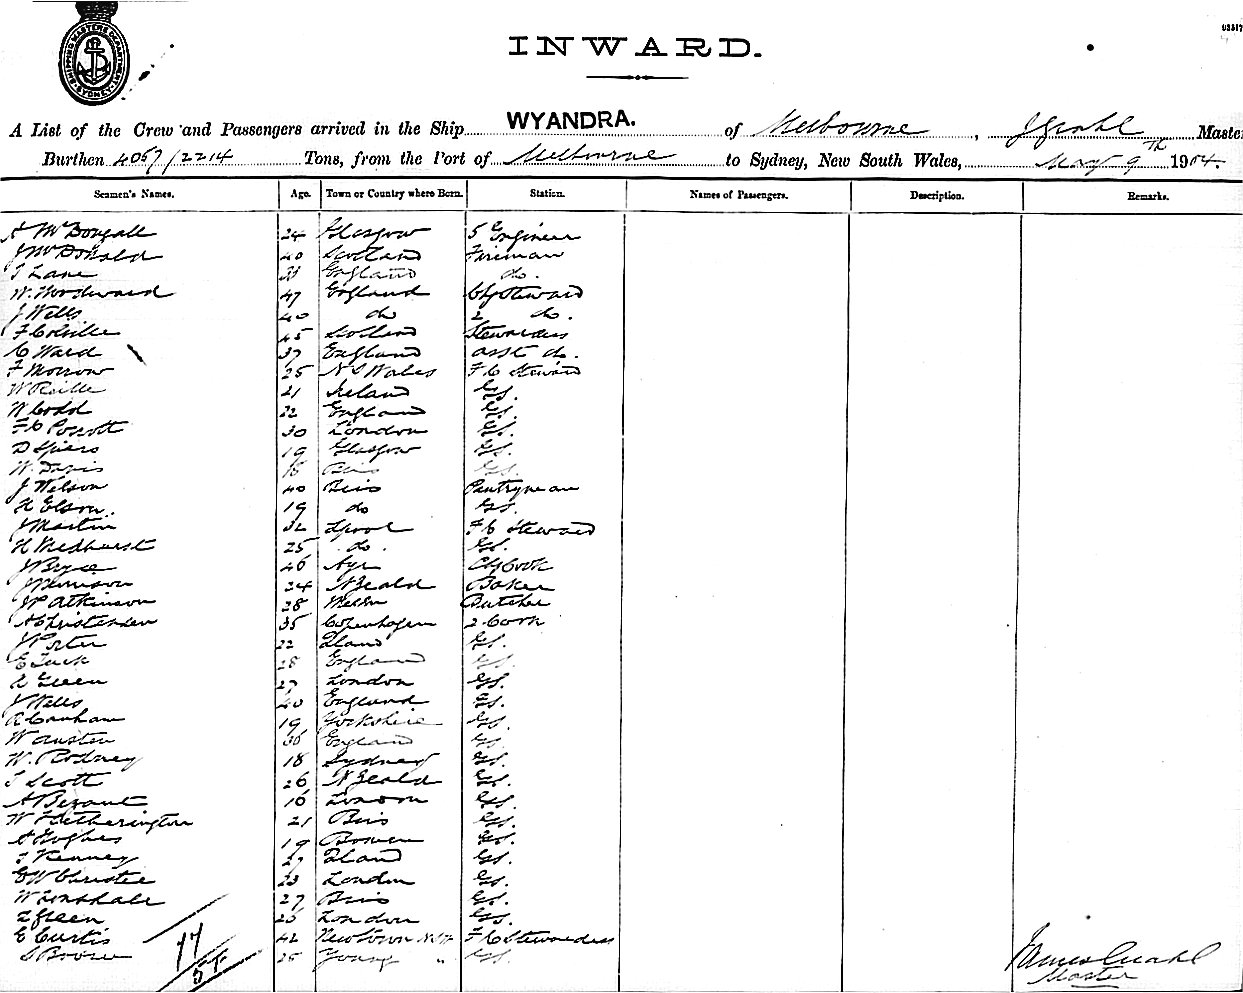 SHIPPING MASTERS DEPARTMENT SYDNEY
INWARD.
A List of the Crew and Passengers arrived in the Ship WYANDRA. of Melbourne, Master
Burthen 4057/2214 Tons, from the Port of Melbourne to Sydney, New South Wales, May 9th 1904.
Seamen's Names. Age. Town or Country where Born. Station. Names of Passengers. Description. Remarks.
A McDougall 24 Glasgow 5 Engineer
J McDonald 40 Scotland Fireman
T Lane 33 England do.
W. Woodward 47 England Chf Steward
J Wells 40 do 2 do.
F Colville 45 Scotland Stewardess
C Ward 37 England asst do.
F Morrow 25 N S Wales F C Steward
W Reille 21 Ireland GS.
W Codd 22 England GS.
F C Poscott 30 London GS.
D Spiers 19 Glasgow GS.
W. Davis 18 Bris GS.
J Wilson 40 Bris Pantryman
A Elson 19 do GS.
J Martin 32 Lpool F C Steward
H Medhurst 25 do. GS.
J Bryce 46 Ayr Chf Cook
J 24 N Zeald Baker
J P Atkinson 28 Melbn Butcher
A Christensen 35 Copenhagen 2 Cook
J Porter 22 GS.
E Tuck 28 England GS.
A Green 27 London GS.
J Wells 40 England GS.
A Canham 19 Yorkshire GS.
W Austen 36 England GS.
W. Rodney 18 Sydney GS.
T Scott 26 N Zeald GS.
A Bezant 16 London GS.
W Hetherington 21 Bris GS.
A Hughes 19 Bowen GS.
T Kenney 27 GS.
E W Christie 23 London GS.
W Lonsdale 27 Bris GS.
Green 26 London GS.
E Curtis 42 Newtown NSW F C Stewardess
S 25 Young " GS.
77
54
James Grahl
Master